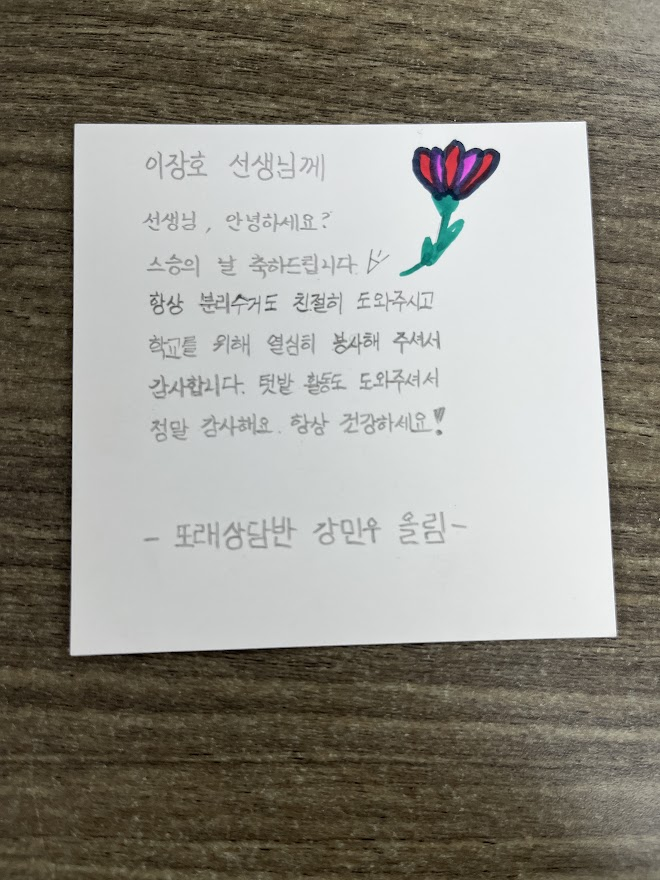 이장호 선생님께
선생님, 안녕하세요?
스승의 날 축하드립니다.
항상 분리수거도 친절히 도와주시고
학교를 위해 열심히 봉사해 주셔서
감사합니다. 텃밭 활동도 도와주셔서
정말 감사해요. 항상 건강하세요!
- 또래상담반 강민우 올림 -